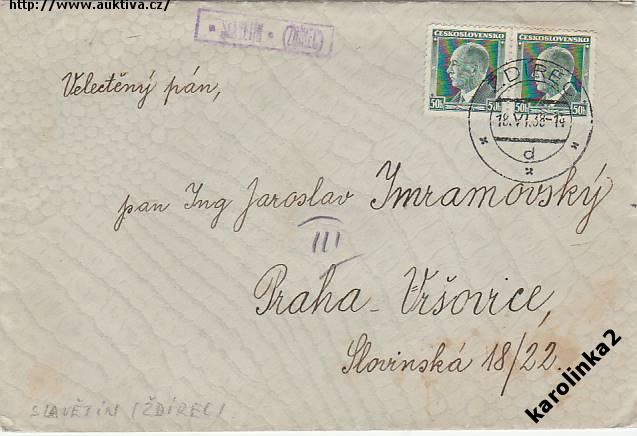 http://www.auktiva.cz/
SLAVĚTÍN (ŽDÍREC)
ČESKOSLOVENSKO ČESKOSLOVENSKO
50h 50h 50h
ŽDÍREC
18.VI.38-14
d
Velectěný pán,
pan Ing Jaroslav Imramovský
III
Praha - Vršovice,
Slovinská 18/22.
SLAVĚTÍN (ŽDÍREC)
karolinka2